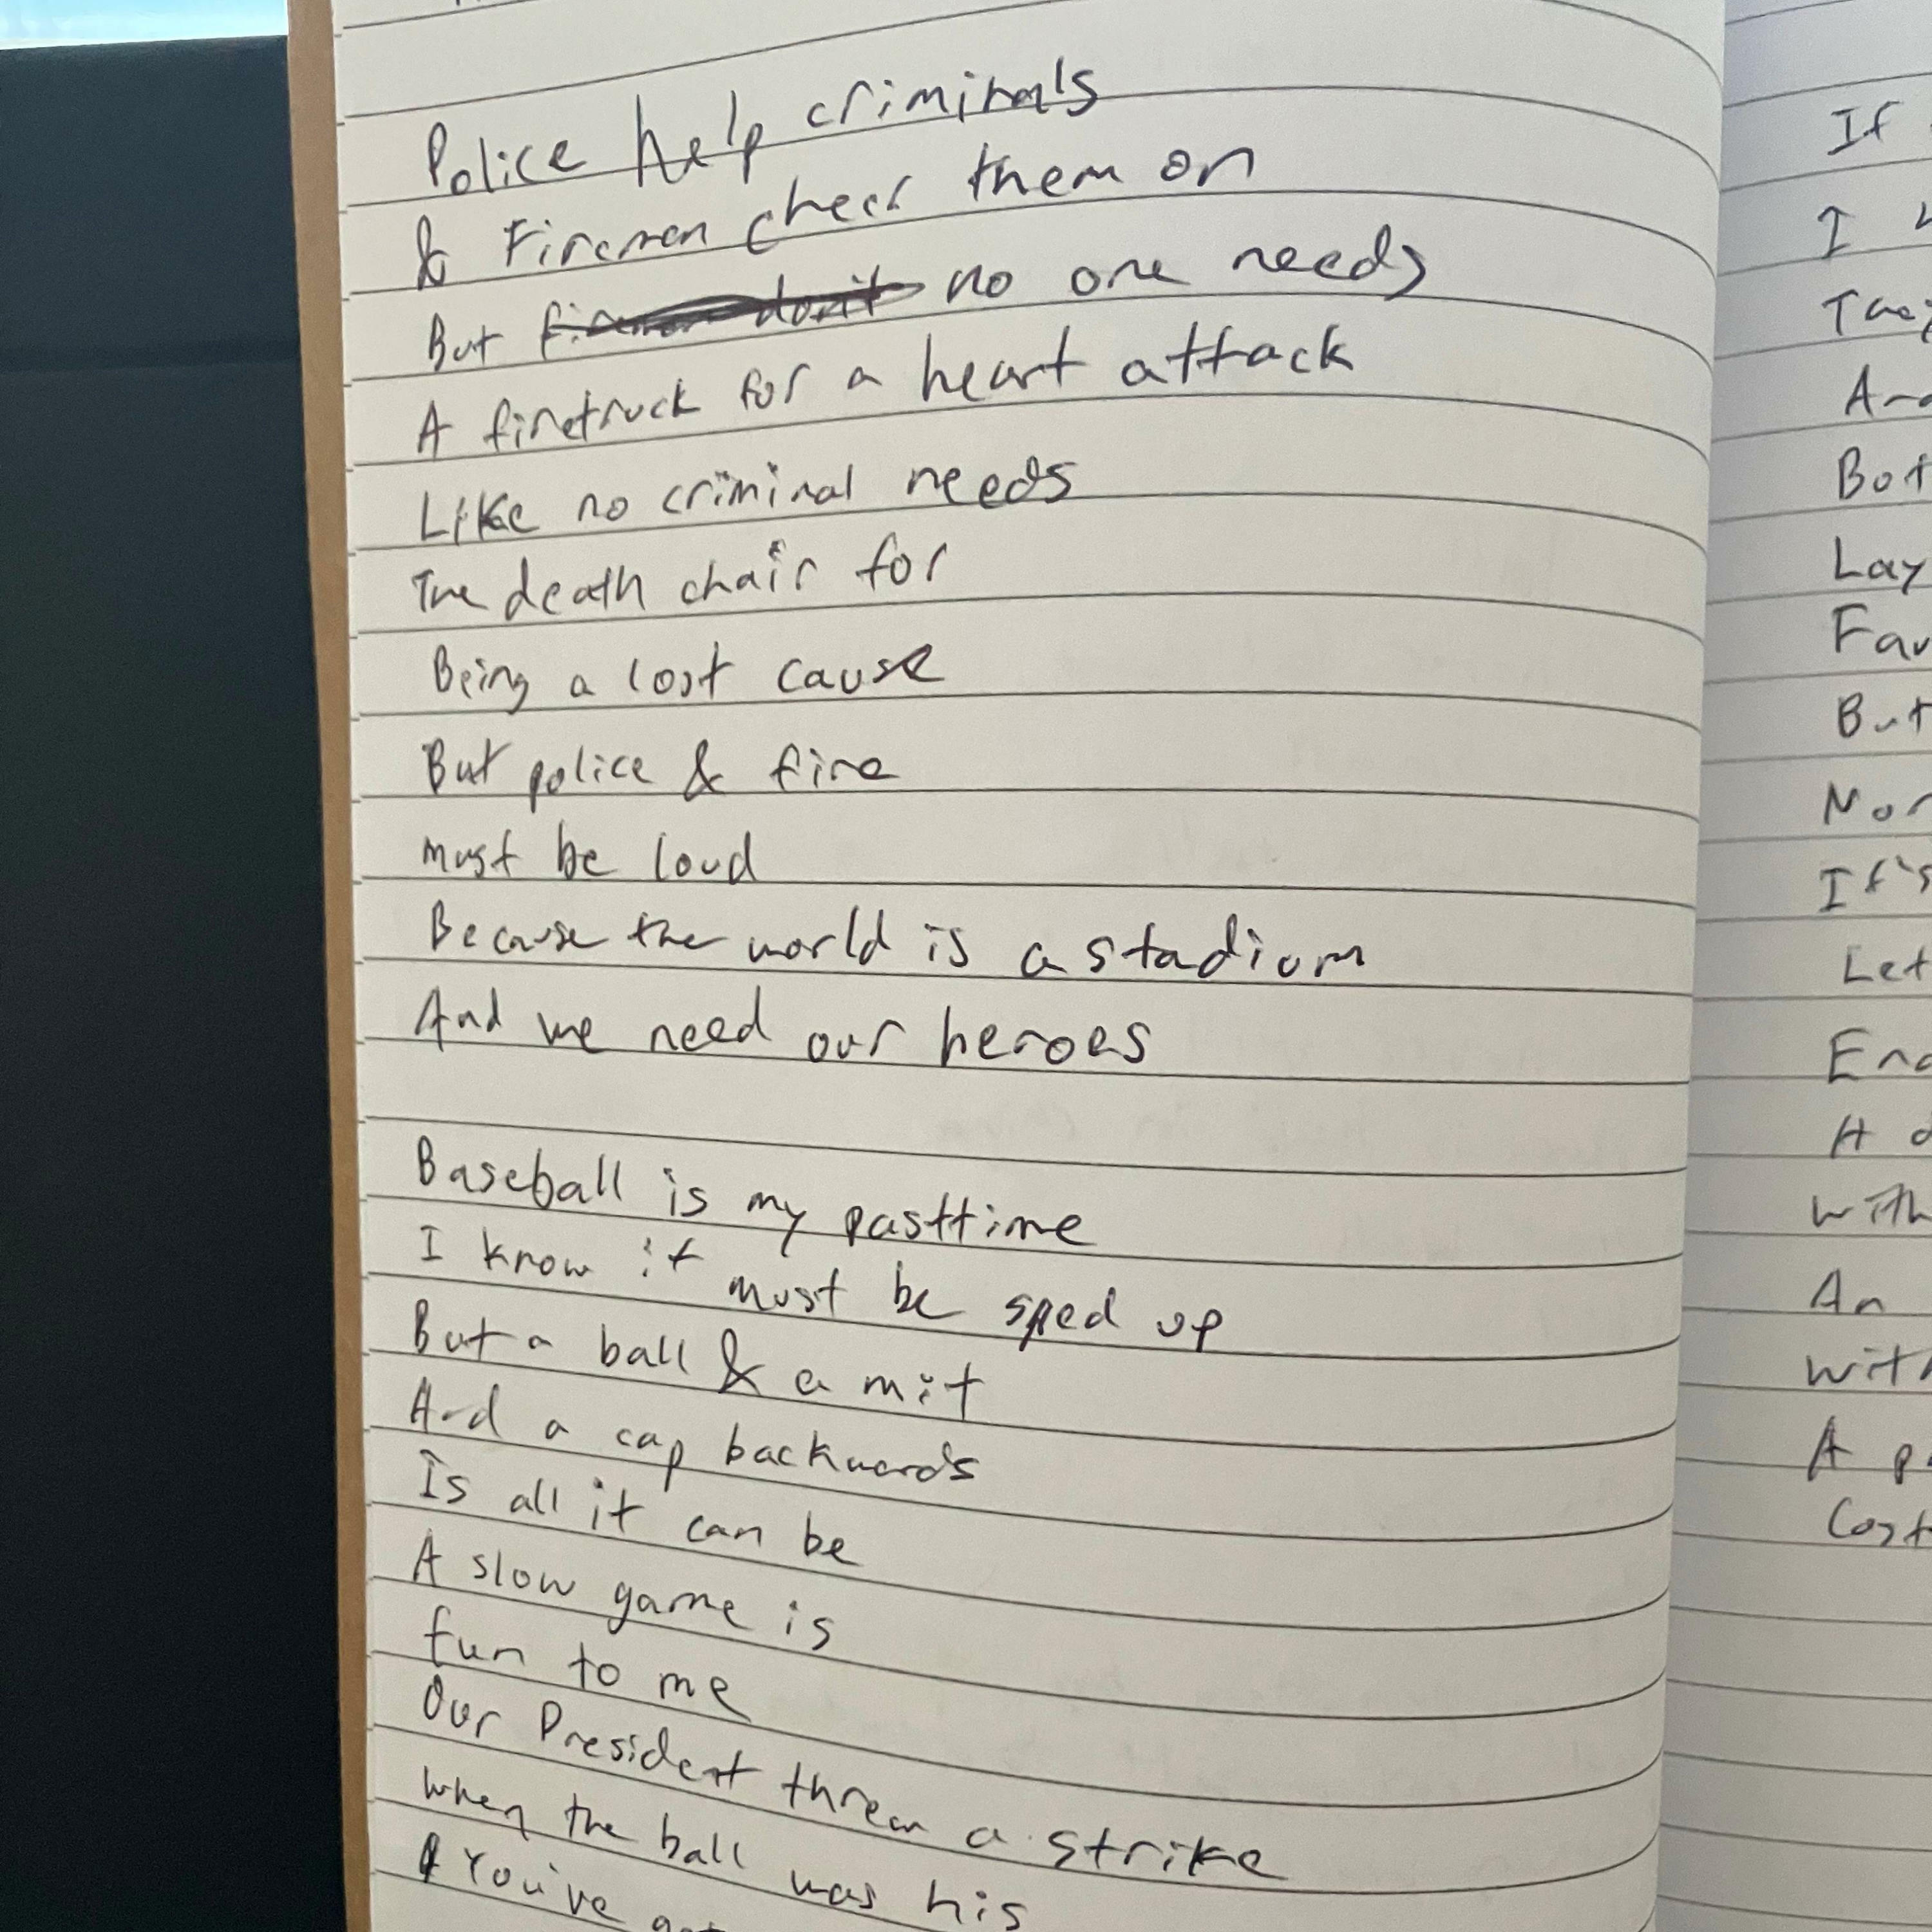 Police help criminals
& Firemen cheer them on
But firemen don't no one needs
A firetruck for a heart attack
Like no criminal needs
The death chair for
Being a lost cause
But police & fire
must be loud
Because the world is a stadium
And we need our heroes
Baseball is my pasttime
I know it must be sped up
But a ball & a mit
And a cap backwards
Is all it can be
A slow game is
fun to me
Our President threw a strike
when the ball was his
You've
If
I
And
Lay
But
Let
With
An
With
A